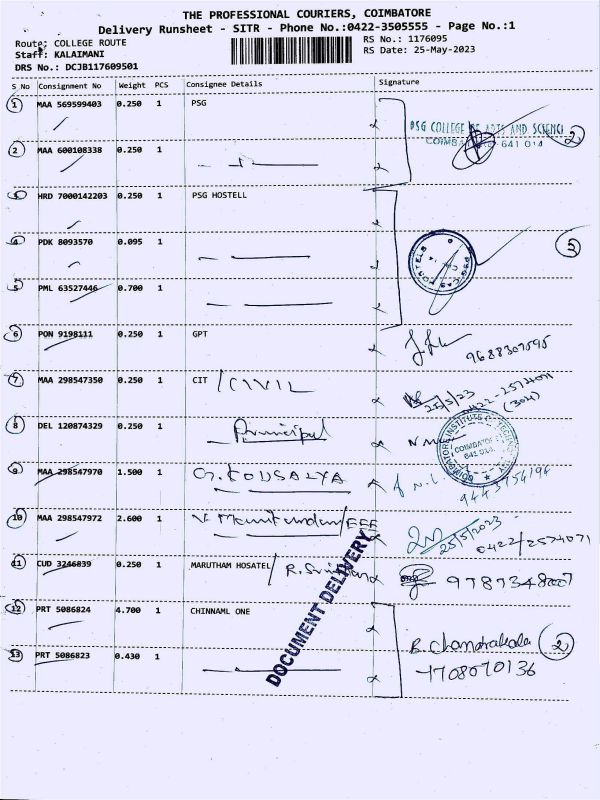 THE PROFESSIONAL COURIERS, COIMBATORE
Delivery Runsheet - SITR - Phone No.:0422-3505555 - Page No.:1
Route: COLLEGE ROUTE RS No.: 1176095
Staff: KALAIMANI RS Date: 25-May-2023
DRS No.: DCJB117609501
S No Consignment No Weight PCS Consignee Details Signature
1 MAA 569599403 0.250 1 PSG
PSG COLLEGE OF ARTS AND SCIENCE 2
641 014
2 MAA 600108338 0.250 1
3 HRD 7000142203 0.250 1 PSG HOSTELL
4 PDK 8093570 0.095 1 3
5 PML 63527446 0.700 1
6 PON 9198111 0.250 1 GPT
9688307595
7 MAA 298547350 0.250 1 CIT / CIVIL
25/5/23 0422-2574071
(304)
8 DEL 120874329 0.250 1 Principal
COIMBATORE INSTITUTE OF TECHNOLOGY
COIMBATORE
641 014
9 MAA 298547970 1.500 1 G. KOUSALYA
9443754194
10 MAA 298547972 2.600 1 /EEE
25/5/2023
0422/2574071
11 CUD 3246839 0.250 1 MARUTHAM HOSATEL /
12 PRT 5086824 4.700 1 CHINNAML ONE
DOCUMENT DELIVERY
R. Chandrakala 2
13 PRT 5086823 0.430 1